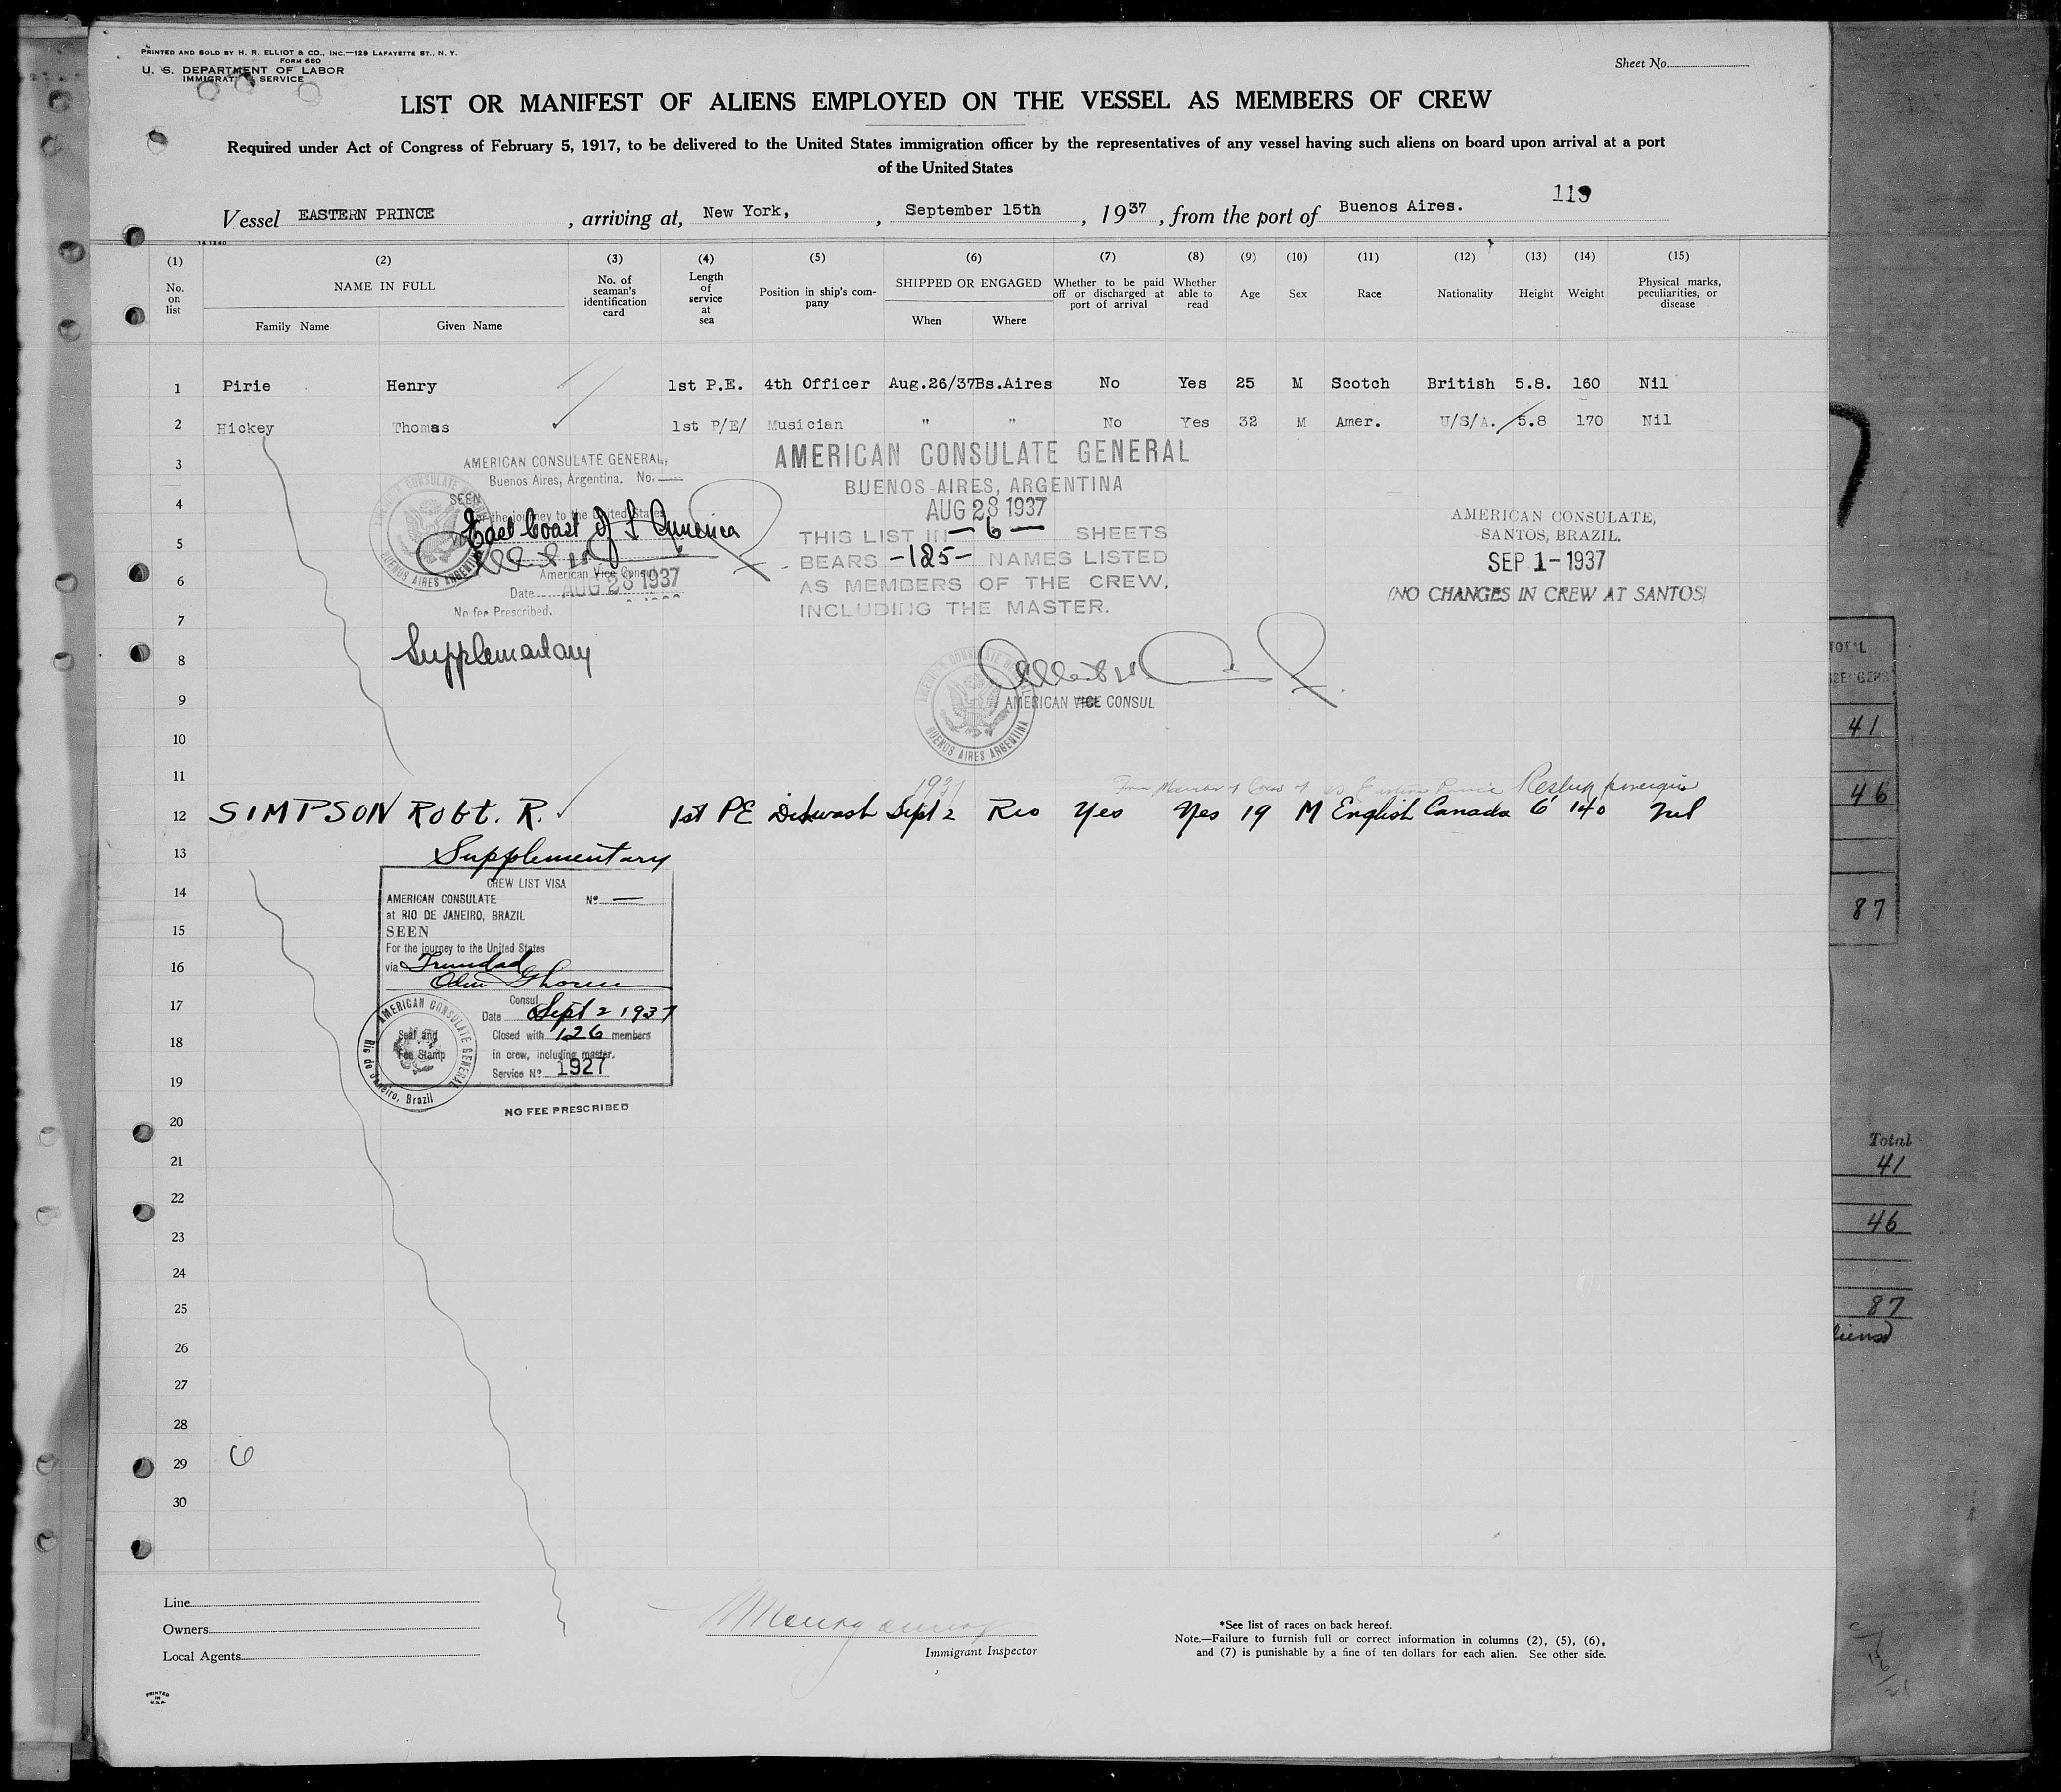 PRINTED AND SOLD BY H. R. ELLIOT & CO., INC.—129 LAFAYETTE ST., N. Y.
FORM 680
U. S. DEPARTMENT OF LABOR
IMMIGRATION SERVICE
Sheet No.
LIST OR MANIFEST OF ALIENS EMPLOYED ON THE VESSEL AS MEMBERS OF CREW
Required under Act of Congress of February 5, 1917, to be delivered to the United States immigration officer by the representatives of any vessel having such aliens on board upon arrival at a port
of the United States
119
Vessel EASTERN PRINCE, arriving at, New York, , September 15th, 1937, from the port of Buenos Aires.
14 1240
(1) (2) (3) (4) (5) (6) (7) (8) (9) (10) (11) (12) (13) (14) (15)
No. on list
NAME IN FULL
Family Name Given Name
No. of seaman's identification card
Length of service at sea
Position in ship's company
SHIPPED OR ENGAGED
When Where
Whether to be paid off or discharged at port of arrival
Whether able to read
Age
Sex
Race
Nationality
Height
Weight
Physical marks, peculiarities, or disease
1 Pirie Henry 1st P.E. 4th Officer Aug.26/37 Bs.Aires No Yes 25 M Scotch British 5.8. 160 Nil
2 Hickey Thomas 1st P/E/ Musician " " No Yes 32 M Amer. U/S/A. 5.8 170 Nil
3
4
5
6
7
8
9
10
11
AMERICAN CONSULATE GENERAL,
Buenos Aires, Argentina. No.
SEEN
for the journey to the United States
East Coast of S America
American Vice Consul
Date AUG 28 1937
No fee Prescribed.
Supplementary
AMERICAN CONSULATE GENERAL
BUENOS AIRES, ARGENTINA
AUG 28 1937
THIS LIST IN —6— SHEETS
BEARS -125- NAMES LISTED
AS MEMBERS OF THE CREW,
INCLUDING THE MASTER.
AMERICAN VICE CONSUL
BUENOS AIRES ARGENTINA
AMERICAN CONSULATE,
SANTOS, BRAZIL.
SEP 1-1937
(NO CHANGES IN CREW AT SANTOS)
1937
Reship foreign
12 SIMPSON Robt. R. 1st PE Dishwash Sept 2 Rio Yes Yes 19 M English Canada 6' 140 Nil
13
Supplementary
14
15
16
17
18
19
CREW LIST VISA
AMERICAN CONSULATE No —
at RIO DE JANEIRO, BRAZIL
SEEN
For the journey to the United States
via Trinidad
Consul
Date Sept 2 1937
Closed with 126 members
in crew, including master.
Service No 1927
AMERICAN CONSULATE GENERAL
Rio de Janeiro, Brazil
Seal and
Fee Stamp
NO FEE PRESCRIBED
20
21
22
23
24
25
26
27
28
29 6
30
Line
Owners
Local Agents
Immigrant Inspector
*See list of races on back hereof.
Note.—Failure to furnish full or correct information in columns (2), (5), (6),
and (7) is punishable by a fine of ten dollars for each alien. See other side.
PRINTED
IN
U.S.A.
TOTAL
41
46
87
Total
41
46
87